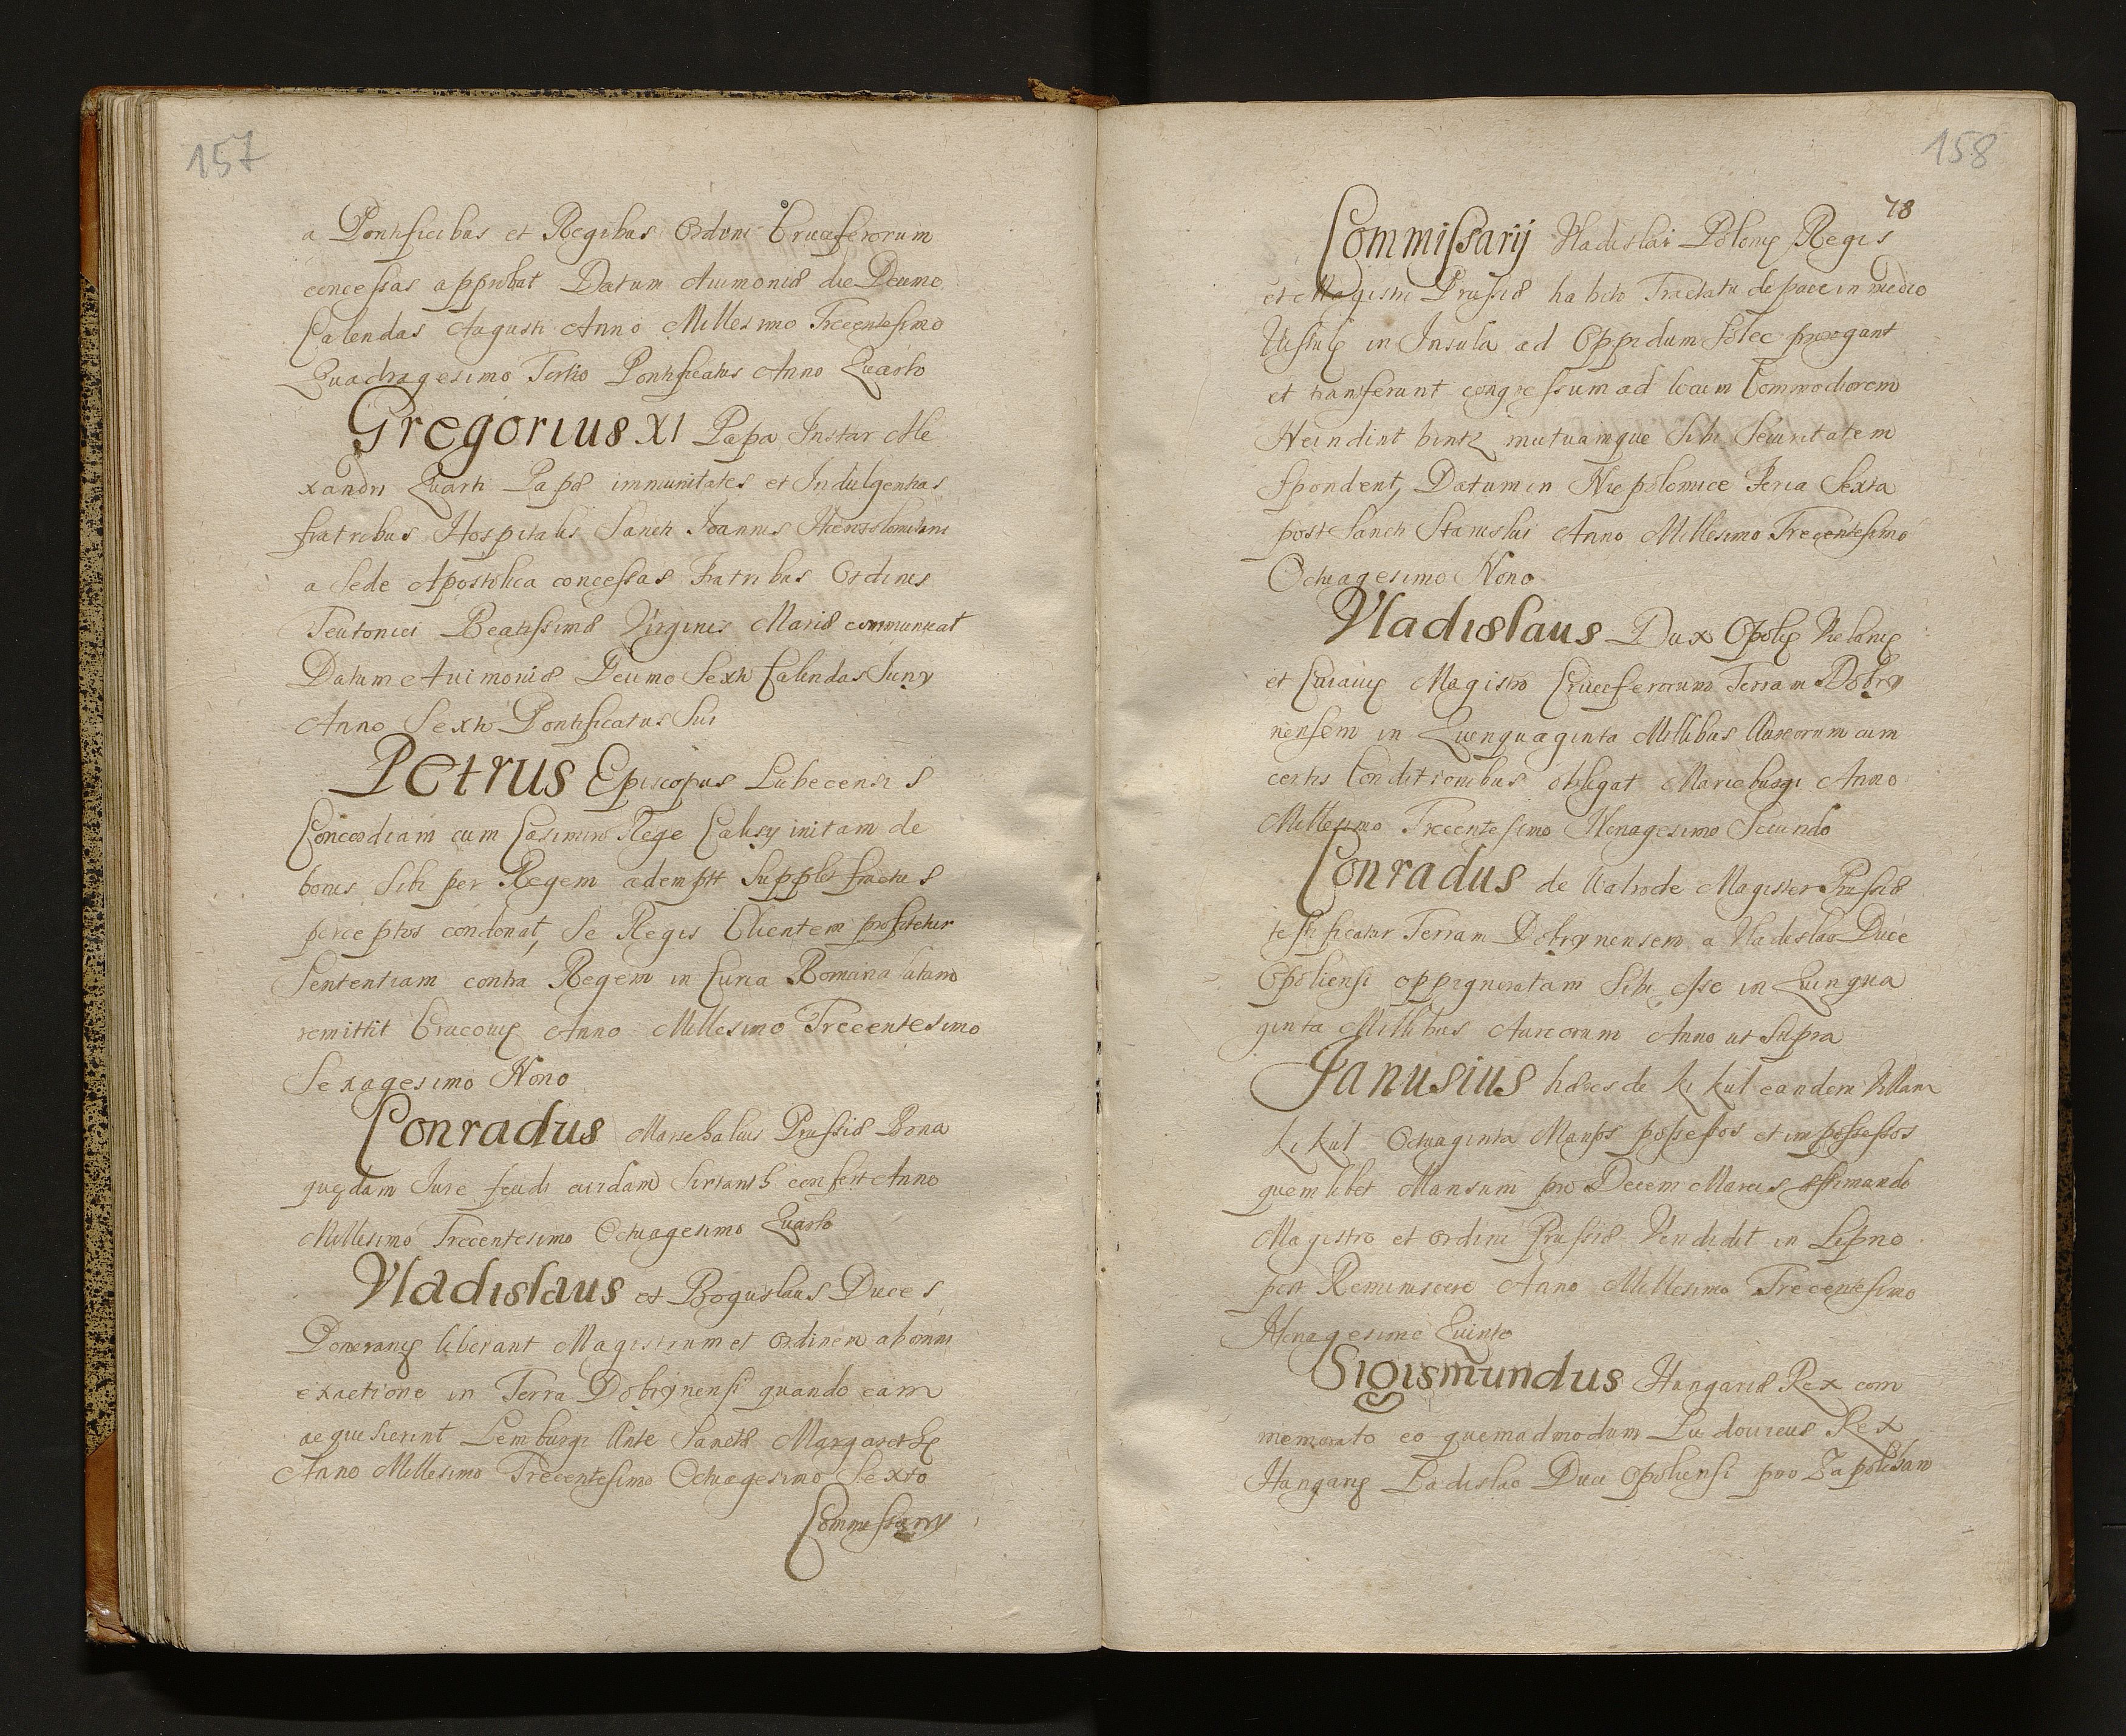 157
a Pontificibus et Regibus Ordini Cruciferorum
concessas approbat Datum Auimoniæ die Decimo
Calendas Augusti Anno Millesimo Trecentesimo
Quadragesimo Tertio Pontificatus Anno Quarto
Gregorius XI Papa Instar Ale
xandri Quarti Papæ immunitates et Indulgentias
fratribus Hospitalis Sancti Joannis Hierosolimitani
a Sede Apostolica concessas Fratribus Ordinis
Teutonici Beatissimæ Virginis Mariæ communicat
Datum Auimoniæ Decimo Sexto Calendas Juny
Anno Sexto Pontificatus Sui
Petrus Episcopus Lubecensis
Concordiam cum Casimiro Rege Calisy initam de
bonis Sibi per Regem ademptis Supplet fructus
perceptos condonat, Se Regis Clientem profitetur
Sententiam contra Regem in Curia Romana latam
remittit Cracouię Anno Millesimo Trecentesimo
Sexagesimo Nono
Conradus Marschalus Prussiæ Bona
quędam Jure feudi cuidam Sirtanth confert Anno
Millesimo Trecentesimo Octuagesimo Quarto
Vladislaus et Boguslaus Duces
Pomeranię liberant Magistrum et Ordinem ab omni
exactione in Terra Dobrynensi quando eam
acquesierint Lemburgi Ante Sanctæ Margarethę
Anno Millesimo Trecentesimo Octuagesimo Sexto
Commissarij
158
78
Commissarij Vladislai Polonię Regis
et Magistri Prussiæ habito Tractatu de pace in medio
Vistulę in Insula ad Oppidum Solec prorogant
et transferunt congressum ad locum Commodiorem
Neindint bintz mutuamque Sibi Securitatem
Spondent, Datum in Niepolomice Feria Sexta
post Sancti Stanislai Anno Millesimo Trecentesimo
Octuagesimo Nono
Vladislaus Dux Opolię Vielunię
et Cuiauię Magistro Cruciferorum Terram Dobry
nensem in Quinquaginta Millibus Aureorum cum
certis Conditionibus obligat Marieburgi Anno
Millesimo Trecentesimo Nonagesimo Secundo
Conradus de Walrode Magister Prussiæ
testificatur Terram Dobrynensem a Vladislao Duce
Opoliensi oppigneratam Sibi esse in Quinqua
ginta Millibus Aureorum Anno ut Supra
Janusius hæres de Kikul eandem Villam
Kikul Octuaginta Mansos possessos et impossessos
quemlibet Mansum pro Decem Marcis æstimando
Magistro et Ordini Prussiæ Vendidit in Lipno
post Reminiscere Anno Millesimo Trecentesimo
Nonagesimo Quinto
Sigismundus Hungariæ Rex com
memorato eo quemadmodum Ludouicus Rex
Hungarię Ladislao Duci Opoliensi pro